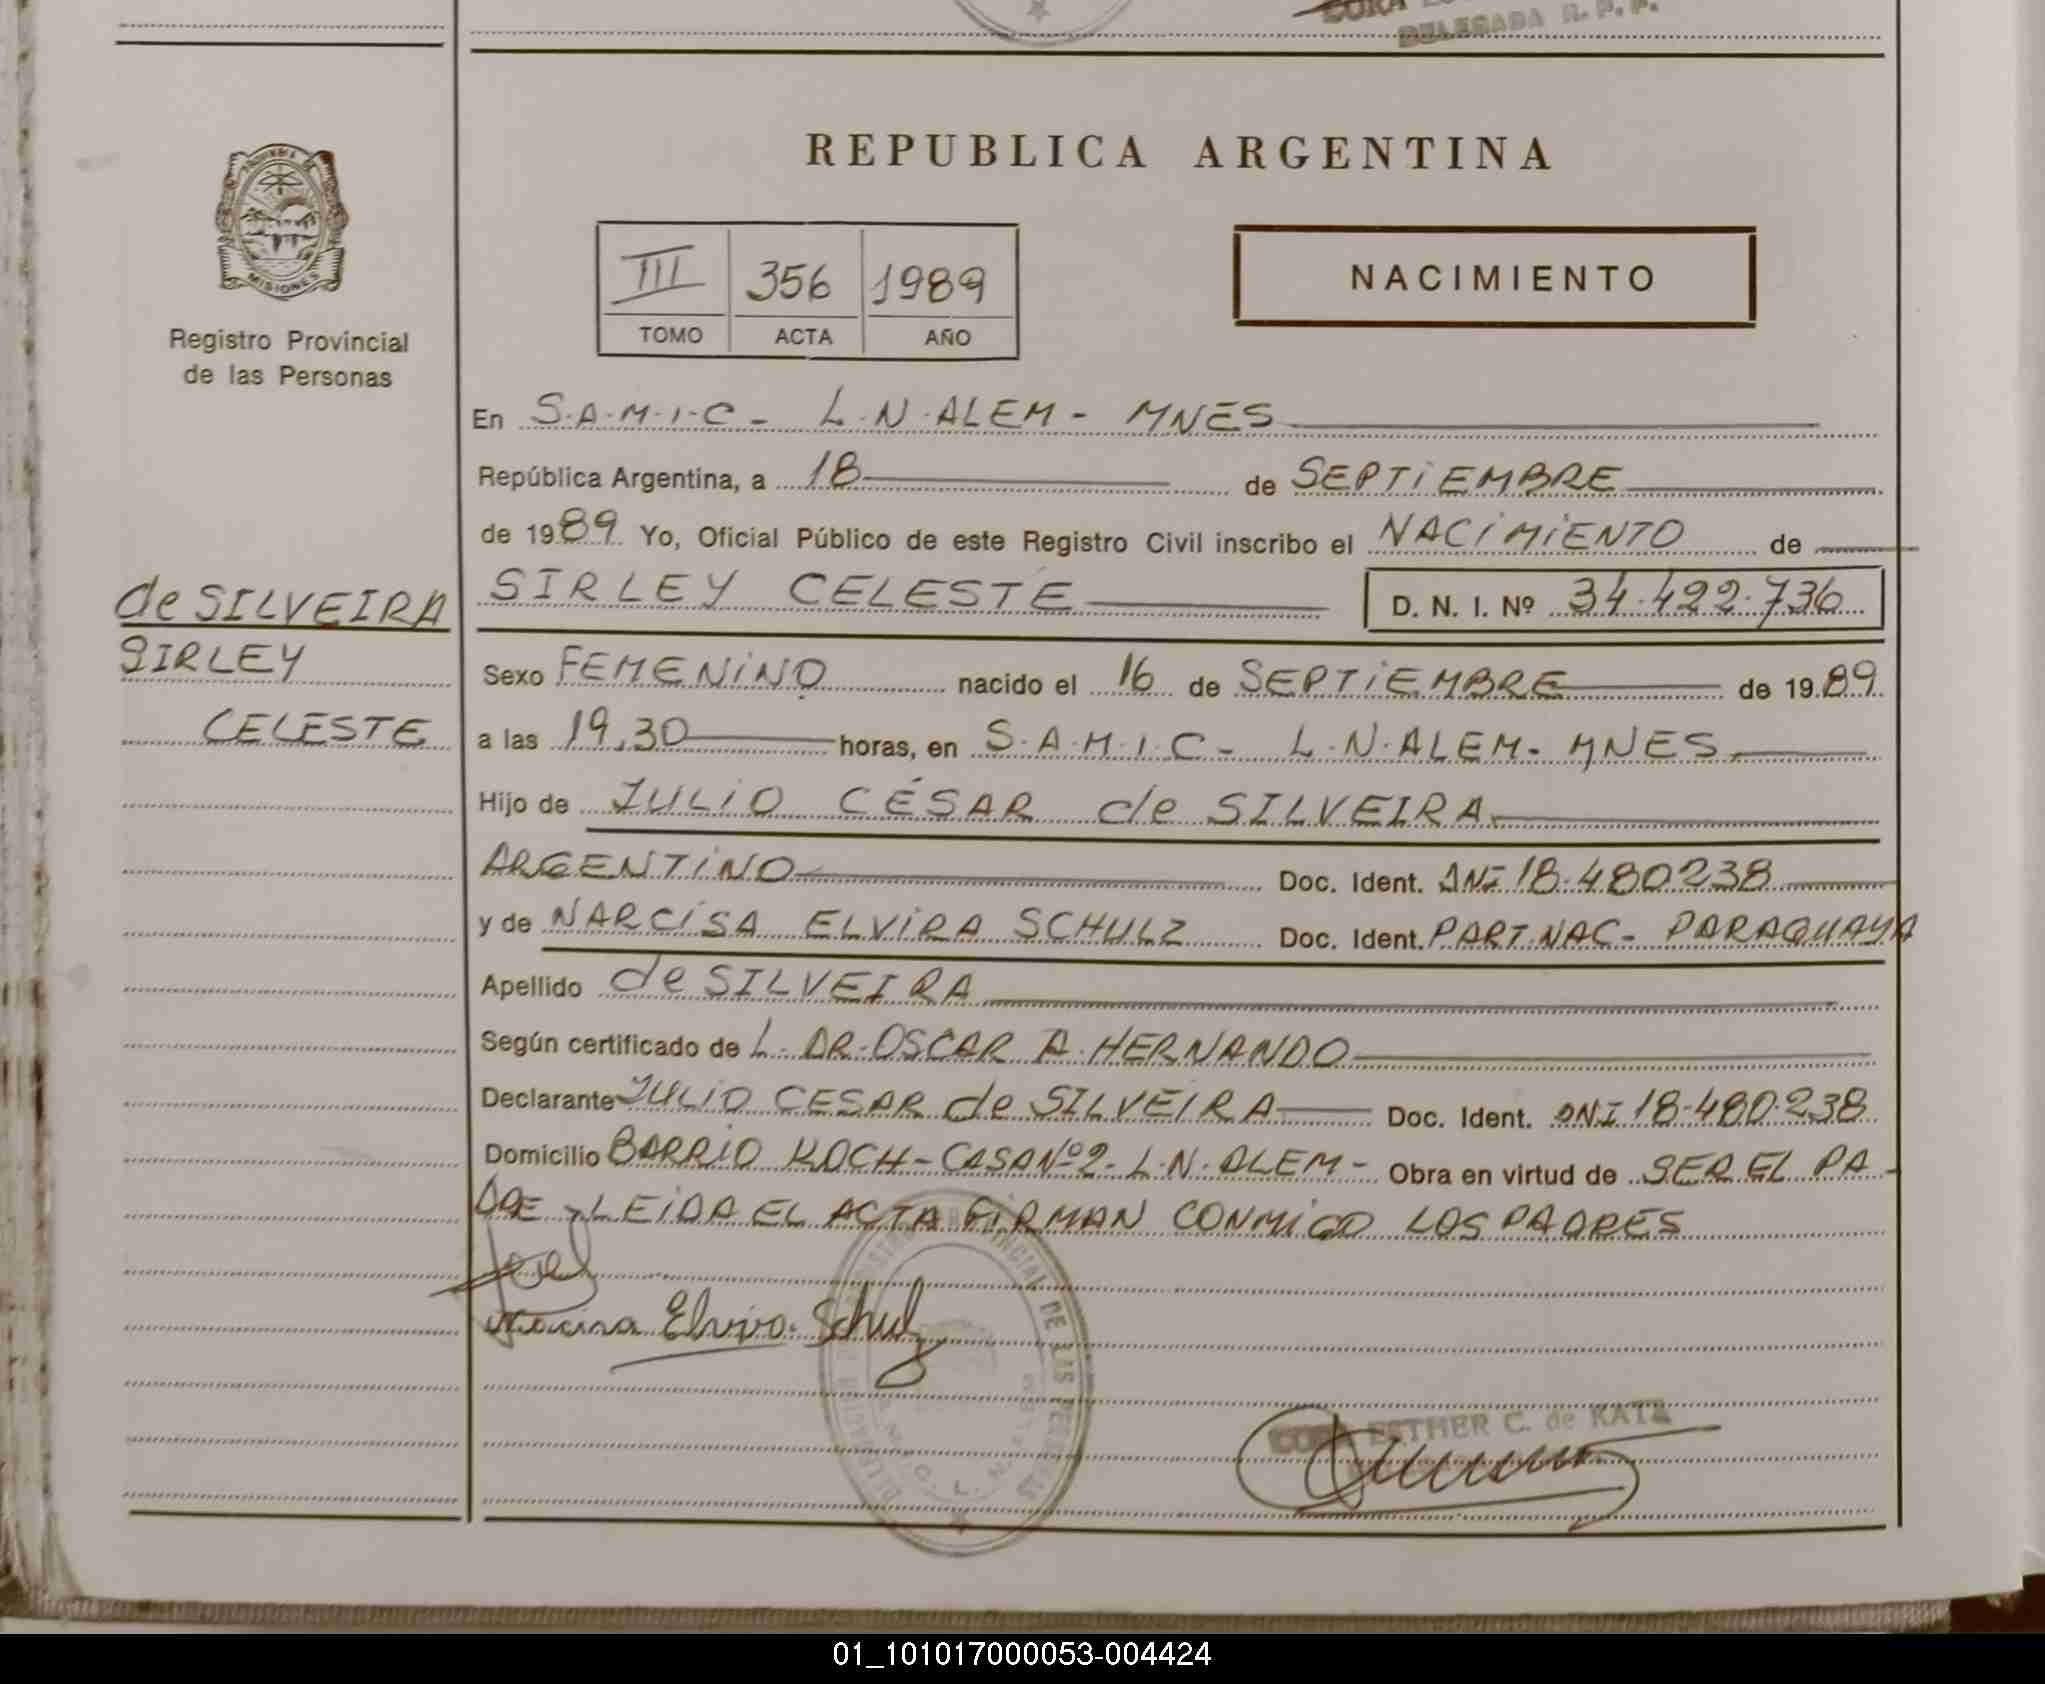 DELEGADA R. P. P.
PROVINCIA DE
MISIONES
Registro Provincial
de las Personas
REPUBLICA ARGENTINA
III 356 1989
TOMO ACTA AÑO
NACIMIENTO
En S.A.M.I.C - L.N.ALEM - MNES
República Argentina, a 18 de SEPTIEMBRE
de 1989 Yo, Oficial Público de este Registro Civil inscribo el NACIMIENTO de
SIRLEY CELESTE D. N. I. Nº 34.422.736
de SILVEIRA
SIRLEY
CELESTE
Sexo FEMENINO nacido el 16 de SEPTIEMBRE de 1989
a las 19,30 horas, en S.A.M.I.C - L.N.ALEM - MNES
Hijo de JULIO CÉSAR de SILVEIRA
ARGENTINO Doc. Ident. DNI 18.480238
y de NARCISA ELVIRA SCHULZ Doc. Ident. PART.NAC - PARAGUAYA
Apellido de SILVEIRA
Según certificado de L. DR. OSCAR A. HERNANDO
Declarante JULIO CESAR de SILVEIRA Doc. Ident. DNI 18.480.238
Domicilio BARRIO KOCH - CASA Nº 2 - L.N. ALEM - Obra en virtud de SER EL PA-
DRE - LEIDA EL ACTA FIRMAN CONMIGO LOS PADRES
Elvira Schulz
REGISTRO PROVINCIAL DE LAS PERSONAS
CORA ESTHER C. de KATZ
01_101017000053-004424